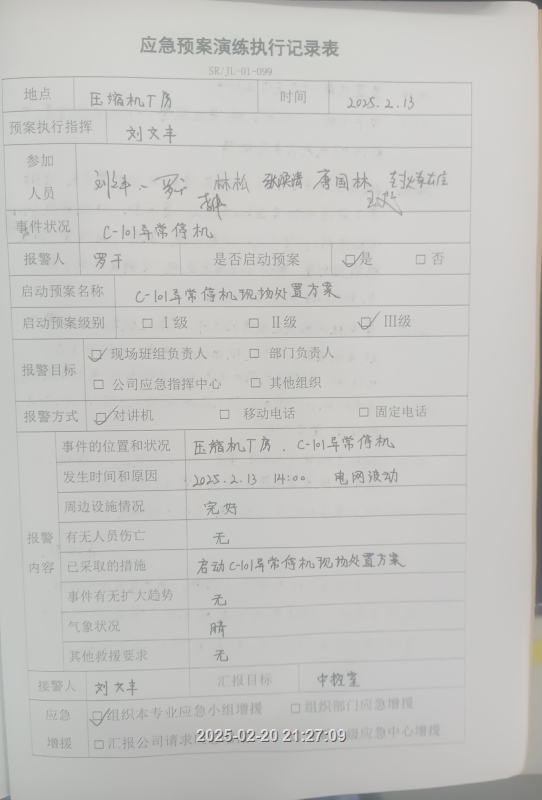 应急预案演练执行记录表
SR/JL-01-099
地点 压缩机厂房 时间 2025.2.13
预案执行指挥 刘文丰
参加人员 林松 唐国林
事件状况 C-101异常停机
报警人 罗干 是否启动预案 ☑是 □否
启动预案名称 C-101异常停机现场处置方案
启动预案级别 □ Ⅰ级 □ Ⅱ级 ☑ Ⅲ级
报警目标 ☑ 现场班组负责人 □ 部门负责人
□ 公司应急指挥中心 □ 其他组织
报警方式 ☑ 对讲机 □ 移动电话 □ 固定电话
报警内容
事件的位置和状况 压缩机厂房、C-101异常停机
发生时间和原因 2025.2.13 14:00 电网波动
周边设施情况 完好
有无人员伤亡 无
已采取的措施 启动C-101异常停机现场处置方案
事件有无扩大趋势 无
气象状况 晴
其他救援要求 无
接警人 刘文丰 汇报目标 中控室
应急增援 ☑组织本专业应急小组增援 □组织部门应急增援
□汇报公司请求 应急中心增援
2025-02-20 21:27:09